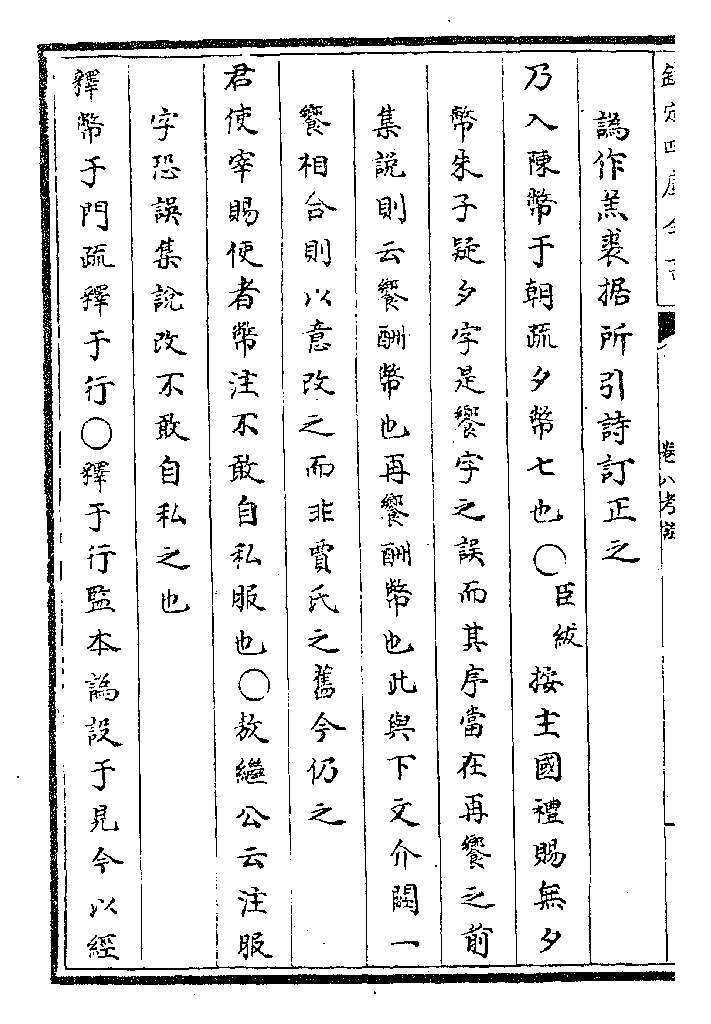 譌作羔裘据所引詩訂正之
乃入陳幣于朝疏夕幣七也○臣紱按主國禮賜無夕
幣朱子疑夕字是饗字之誤而其序當在再饗之前
集說則云饗酬幣也再饗酬幣也此與下文介闕一
饗相合則以意改之而非賈氏之舊今仍之
君使宰賜使者幣注不敢自私服也○敖繼公云注服
字恐誤集說改不敢自私之也
釋幣于門疏釋于行○釋于行監本譌設于見今以經
欽定四庫全書
卷八考證